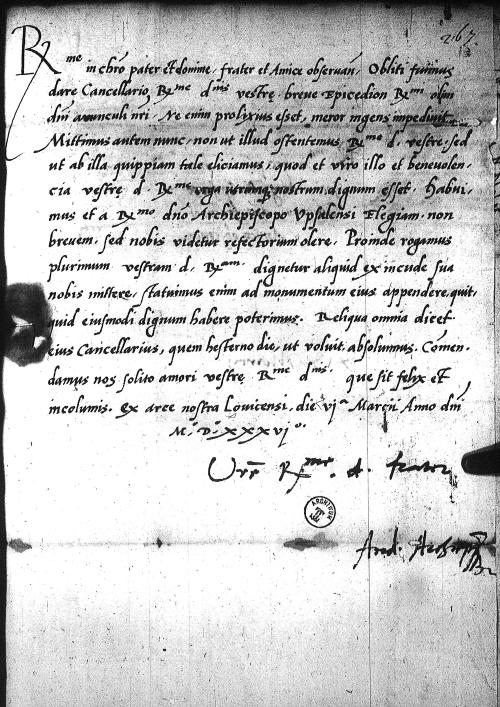 267
R me in chro pater et domine, frater et Amice observan. Obliti fuimus
dare Cancellario Rme dnis vestrę, breve Epicedion Rmi olim
dni avunculi nri. Ne enim prolixus esset, meror ingens impediuit.
Mittimus autem nunc, non ut illud ostentemus, Rme d. vestrę, sed
ut ab illa quippiam tale eliciamus, quod et viro illo et benevolen-
cia vestrę d. Rme erga utrumque nostrum dignum esset. Habui-
mus et a Rmo dno Archiepiscopo Vpsalensi Elegiam non
brevem, sed nobis videtur refectorium olere. Proinde rogamus
plurimum vestram d. Rmam. dignetur aliquid ex incude sua
nobis mittere, statuimus enim ad monumentum eius appendere, quit,
quid eiusmodi dignum habere poterimus. Reliqua omnia dicet
eius Cancellarius, quem hesterno die, ut voluit, absoluimus. Comen-
damus nos solito amori vestrę Rme dnis. que sit felix et
incolumis. Ex arce nostra Lovicensi, die vja Marcii Anno dni
M.º D.º XXXVjo.
Vre Rme. d. frater
ARCHIWUM
And. Archiepps